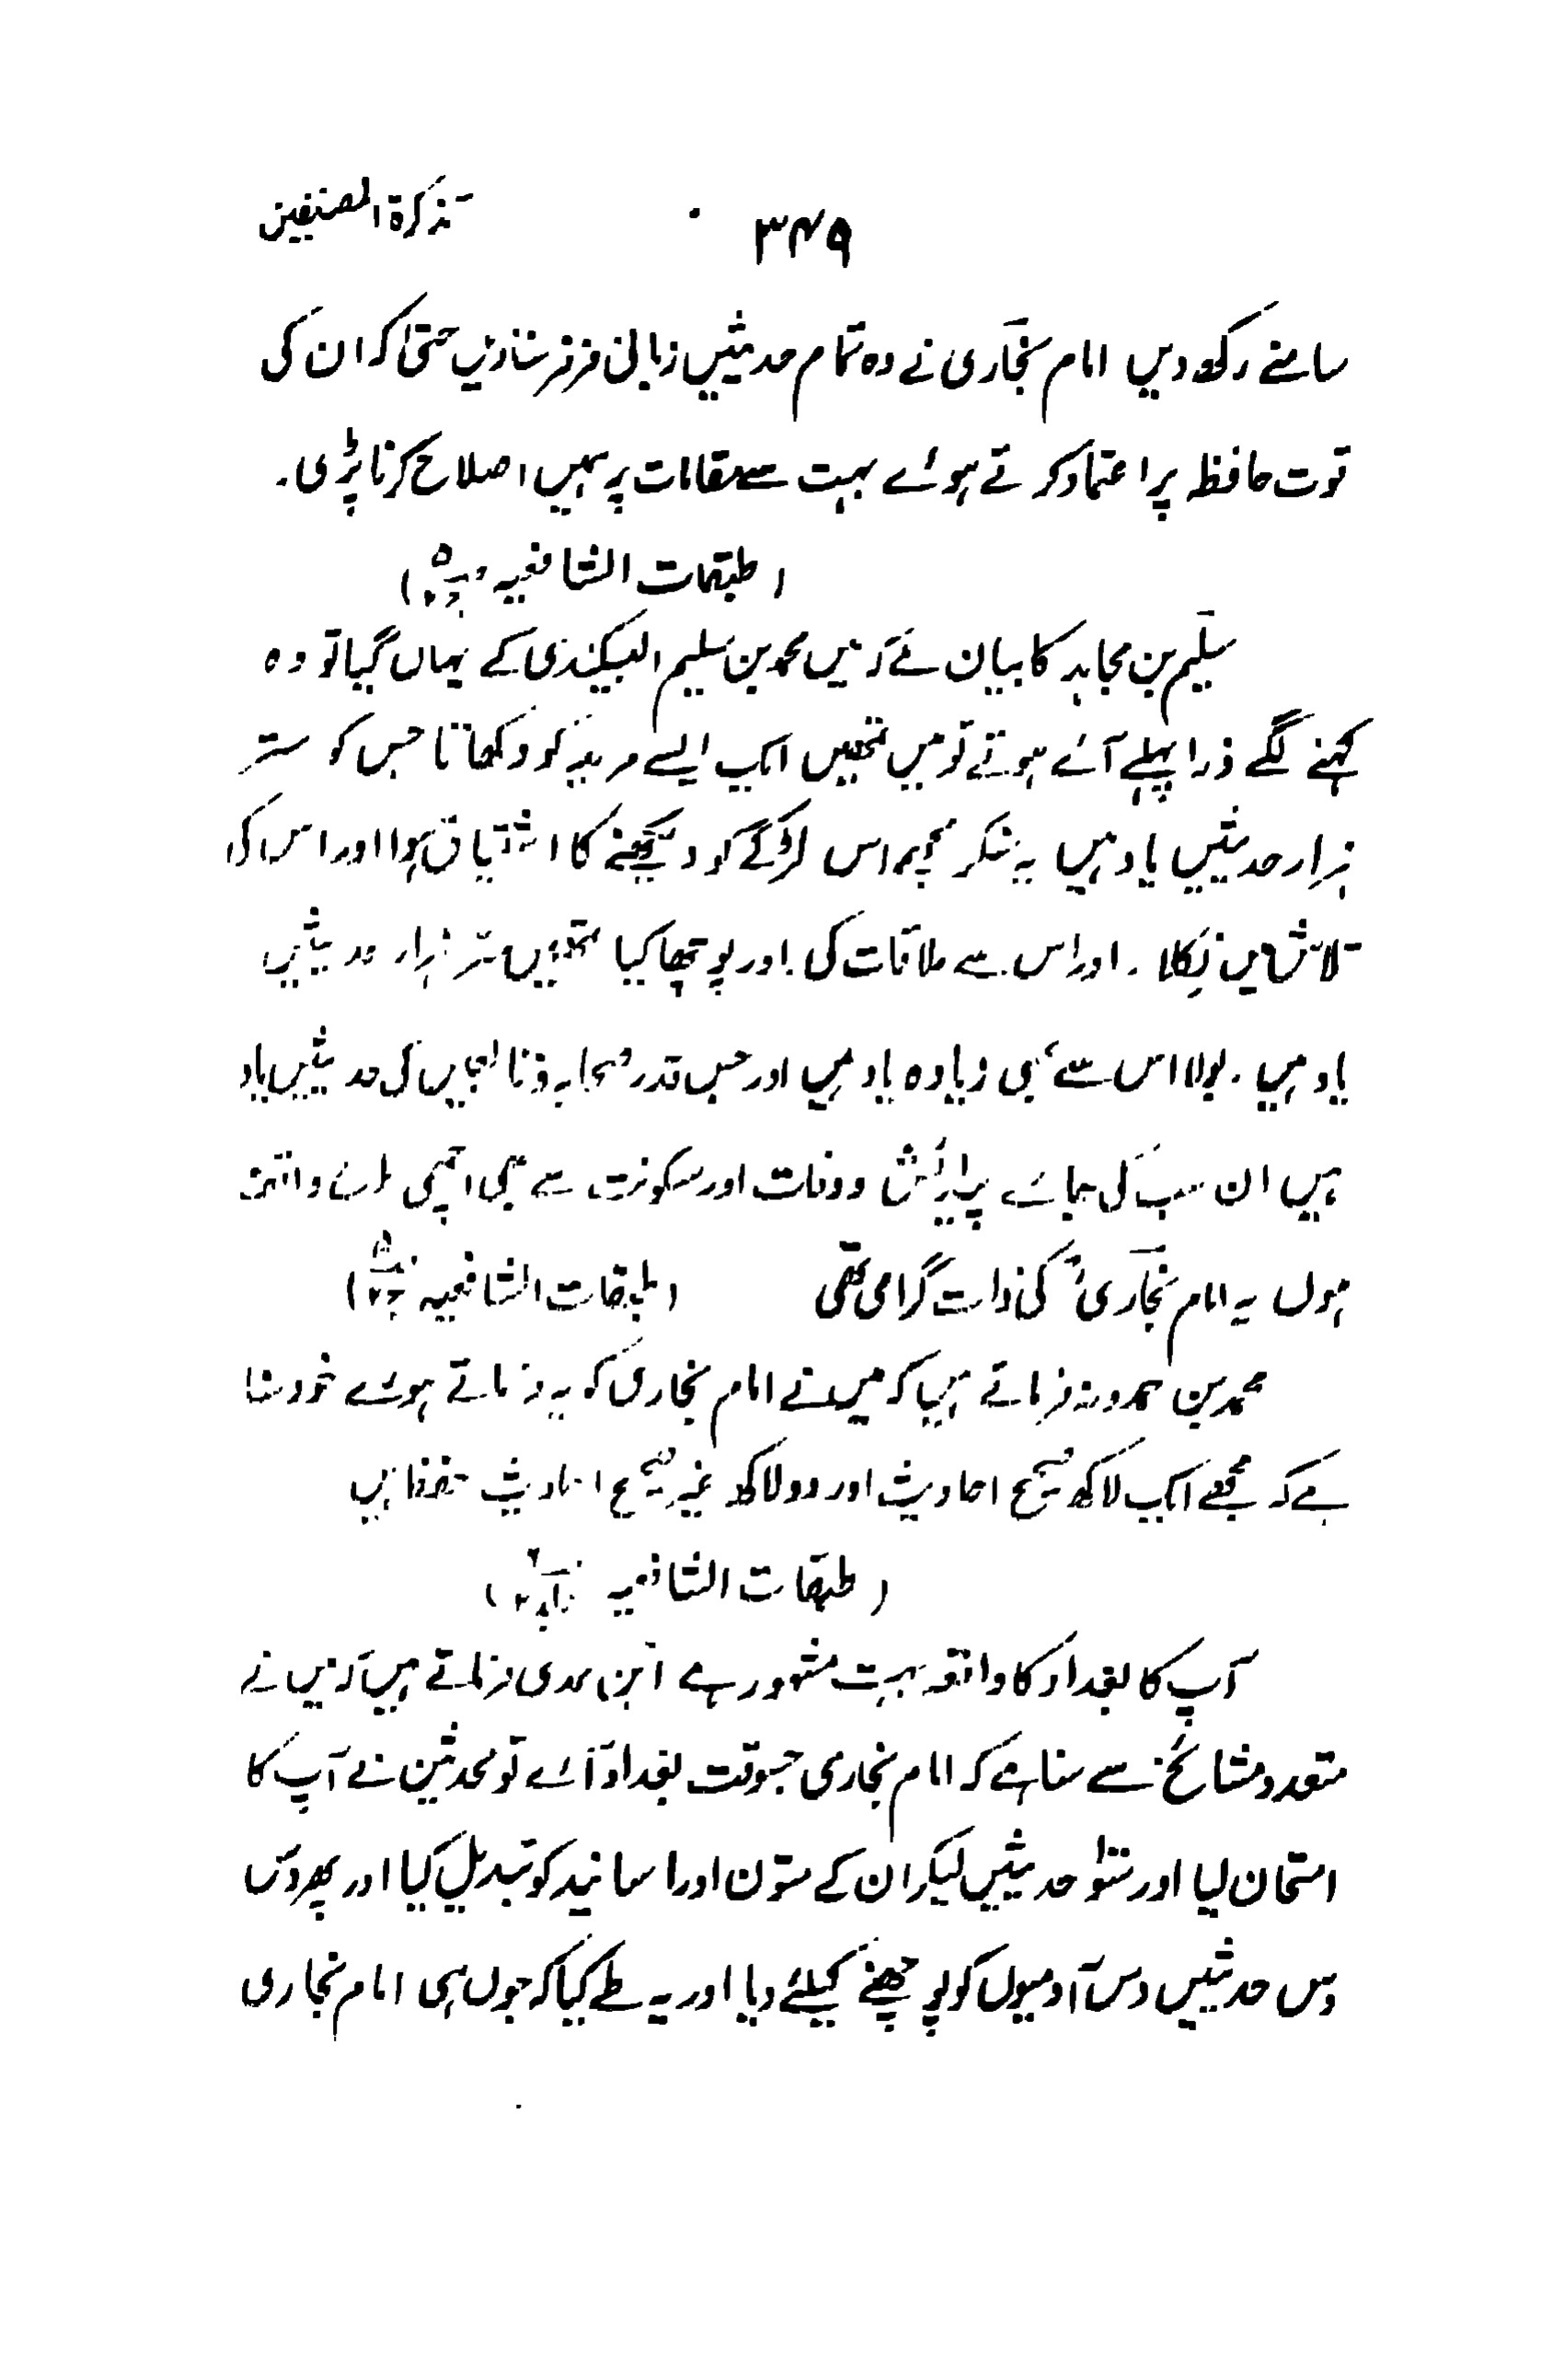 تذکرۃ المصنفین
۳۴۹
سامنے رکھ دیں امام بخاری نے وہ تمام حدیثیں زبانی فرفر سنا دیں حتیٰ کہ ان کی
قوت حافظہ پر اعتماد کرتے ہوئے بہت سے مقامات پر ہمیں اصلاح کرنا پڑی۔
(طبقات الشافعیہ)
سلیم بن مجاہد کا بیان ہے کہ میں محمد بن سلیم البیکندی کے یہاں گیا تو وہ
کہنے لگے ذرا پہلے آئے ہوتے تو میں تمھیں ایک ایسے کو دکھاتا جس کو ستر
ہزار حدیثیں یاد ہیں یہ سنکر مجھے اس لڑکے کو دیکھنے کا اشتیاق ہوا اور اس کی
تلاش میں نکلا۔ اور اس سے ملاقات کی اور پوچھا کیا تمھیں ستر ہزار حدیثیں
یاد ہیں۔ بولا اس سے بھی زیادہ یاد ہیں اور جس قدر صحابہ و تابعین کی حدیثیں یاد
ہیں ان سب کی جائے پیدائش و وفات اور سکونت سے بھی اچھی طرح واقف
ہوں یہ امام بخاریؒ کی ذات گرامی تھی (طبقات الشافعیہ)
محمد بن حمدویہ فرماتے ہیں کہ میں نے امام بخاری کو یہ فرماتے ہوئے خود سنا
ہے کہ مجھے ایک لاکھ صحیح احادیث اور دو لاکھ غیر صحیح احادیث حفظ ہیں
(طبقات الشافعیہ)
آپ کا بغداد کا واقعہ بہت مشہور ہے ابن عدی فرماتے ہیں کہ میں نے
متعدد مشائخ سے سنا ہے کہ امام بخاری جسوقت بغداد آئے تو محدثین نے آپ کا
امتحان لیا اور سو حدیثیں لیکر ان کے متون اور اسانید کو تبدیل کیا اور پھر دس
دس حدیثیں دس آدمیوں کو پوچھنے کیلئے دیا اور یہ طے کیا کہ جوں ہی امام بخاری